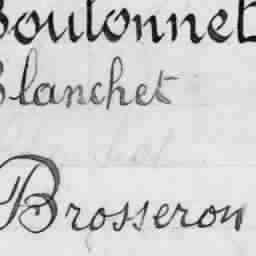 Boulonnet
Blanchet
Brosseron